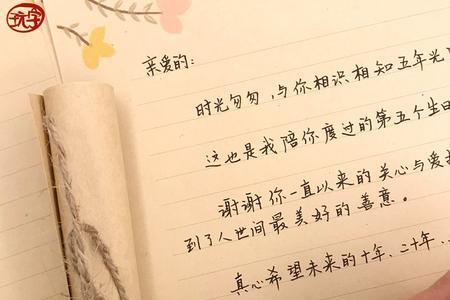 亲爱的:
时光匆匆,与你相识相知五年光
这也是我陪你度过的第五个生日
谢谢你一直以来的关心与爱
到了人世间最美好的善意。
真心希望未来的十年、二十年、